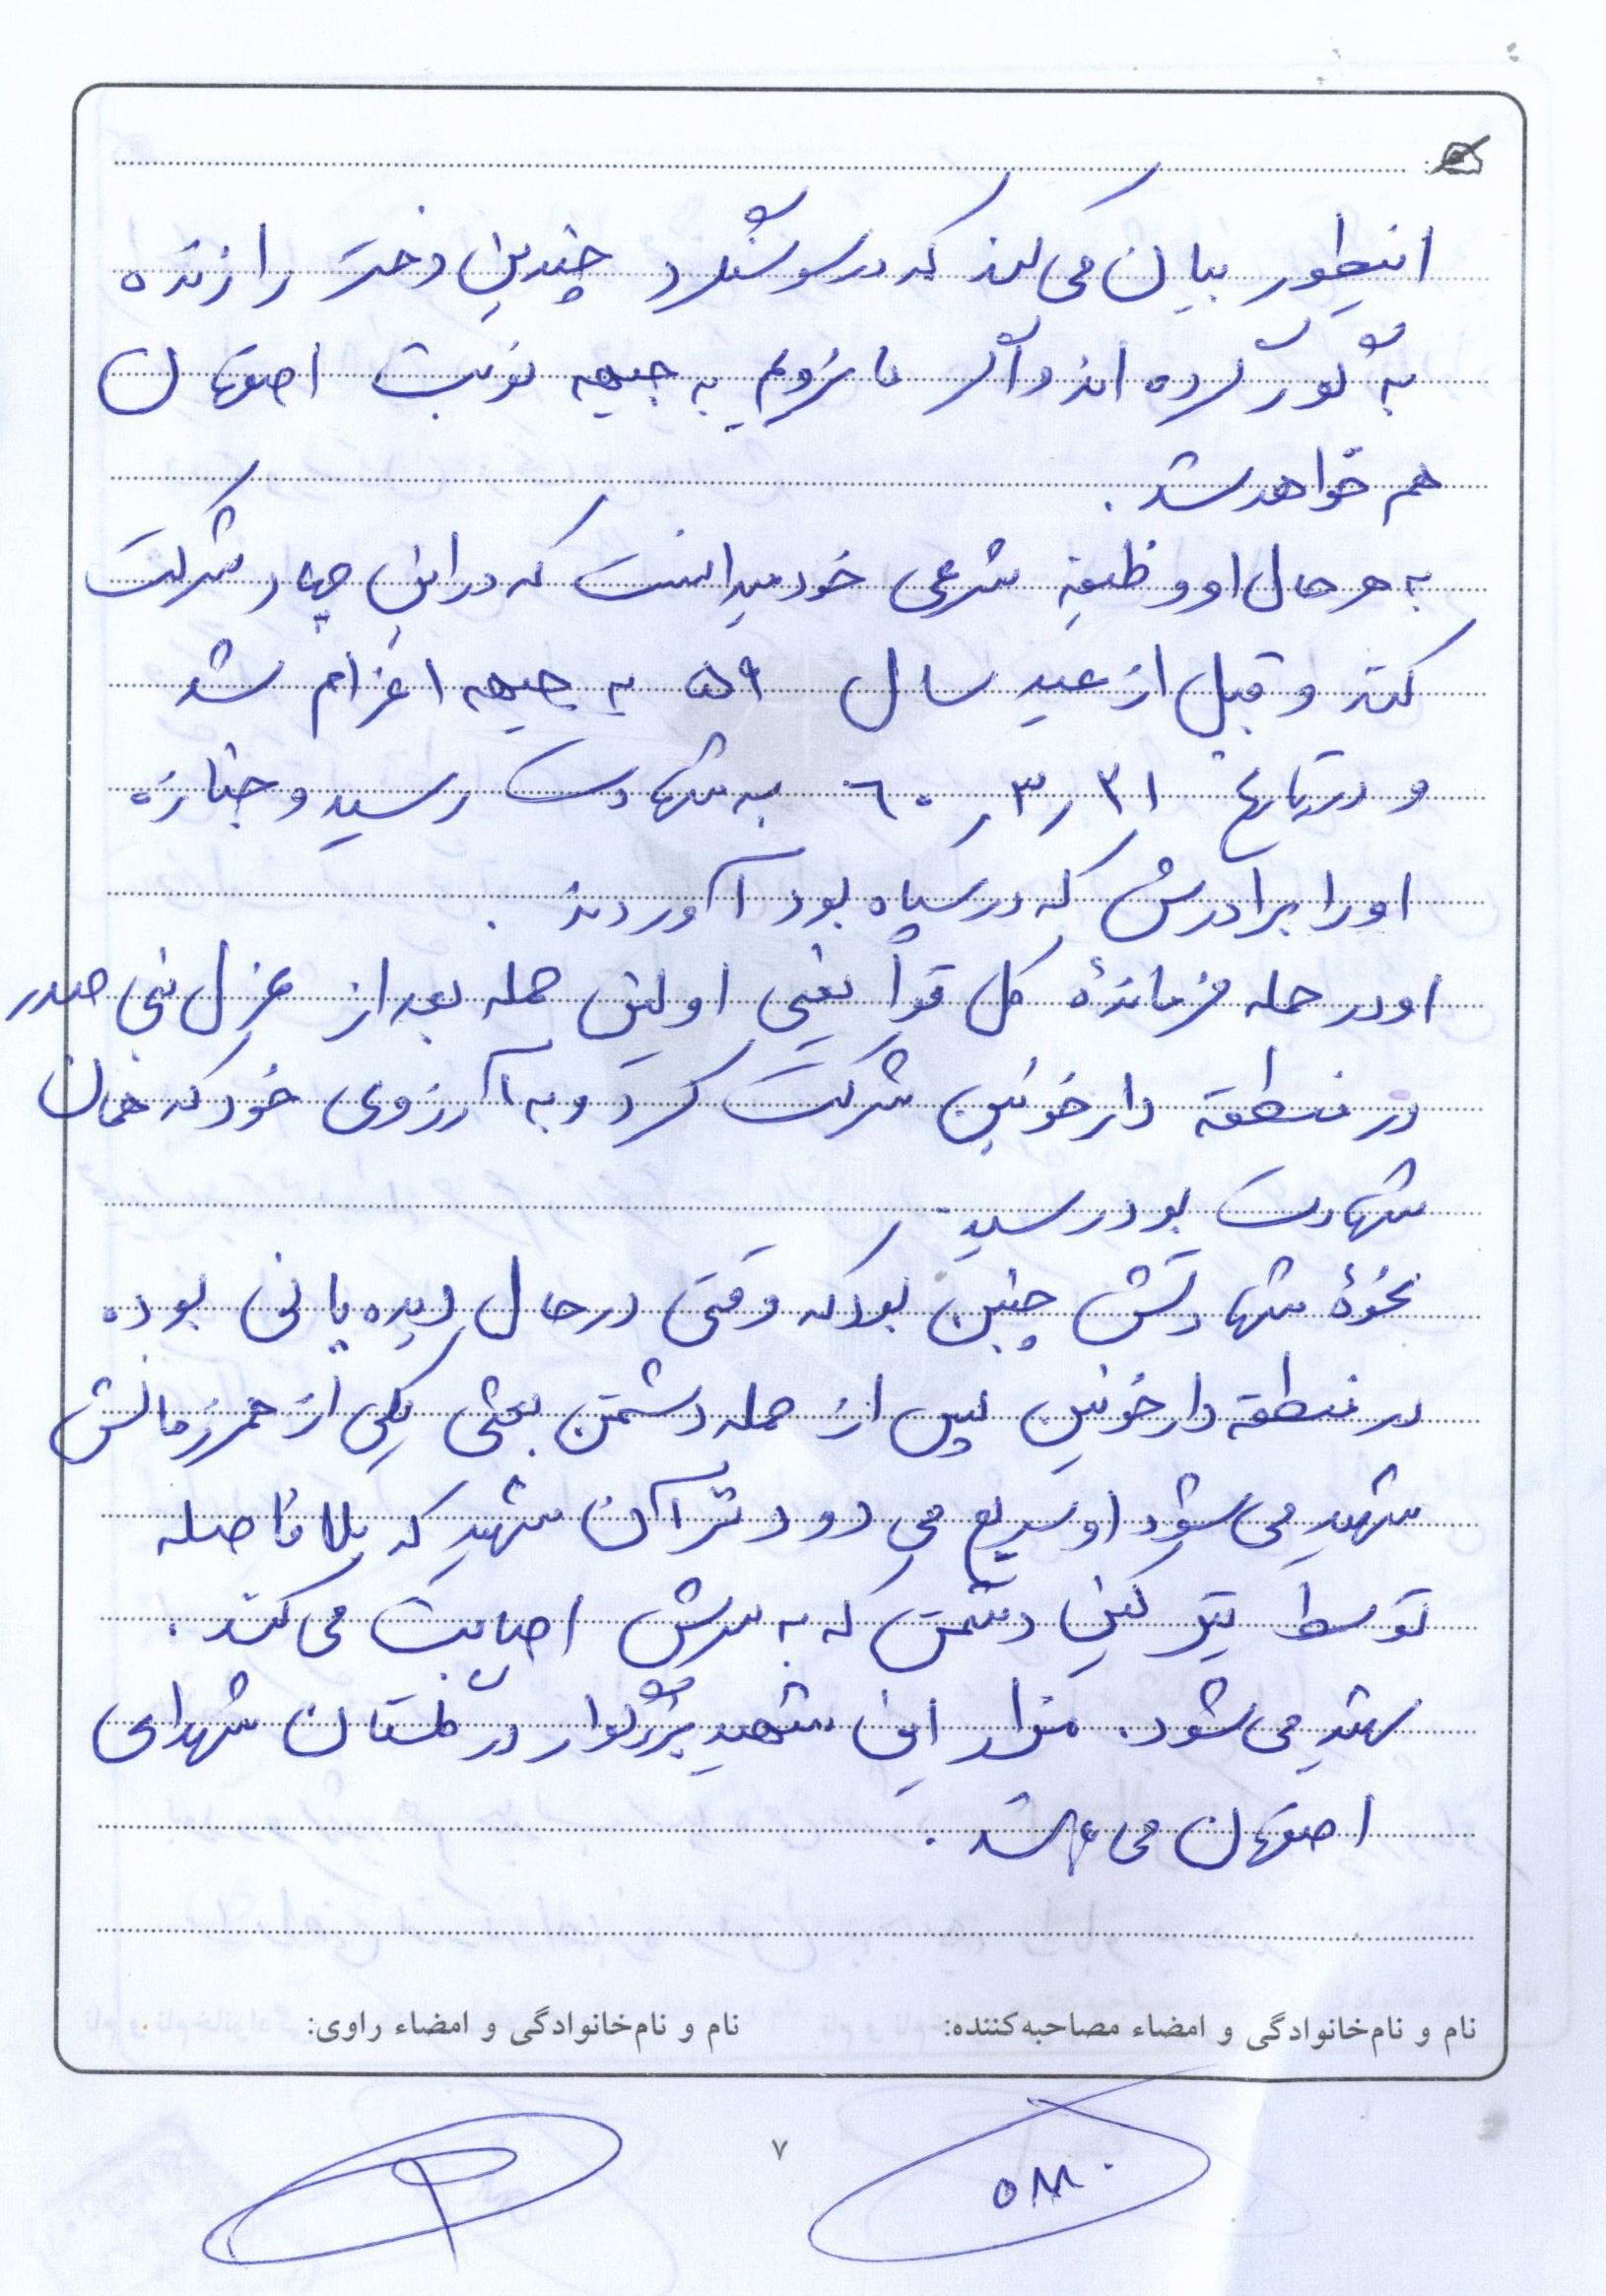 اینطور بیان می کند که در سوسنگرد چندین دختر را زنده
به گور کرده اند و اگر ما نرویم به جبهه نوبت اصفهان
هم خواهد شد.
به هر حال او وظیفه شرعی خود میدانست که در این جهاد شرکت
کند و قبل از عید سال ۵۹ به جبهه اعزام شد
و در تاریخ ۳۱ر۳ر۶۰ به شهادت رسید و جنازه
او را برادرش که در سپاه بود آوردند.
او در حمله فرماندهٔ کل قوا یعنی اولین حمله بعد از عزل بنی صدر
در منطقه دارخوئین شرکت کرد و به آرزوی خود که همان
شهادت بود رسید.
نحوهٔ شهادتش چنین بود که وقتی در حال دیده بانی بوده
در منطقه دارخوئین پس از حمله دشمن بعثی یکی از همرزمانش
شهید می شود او سریع می دود نزد آن شهید که بلافاصله
توسط تیر کین دشمن که به سرش اصابت می کند.
شهید می شود. مزار این شهید بزرگوار در گلستان شهدای
اصفهان می باشد.
نام و نام‌خانوادگی و امضاء مصاحبه‌کننده: نام و نام‌خانوادگی و امضاء راوی:
۷